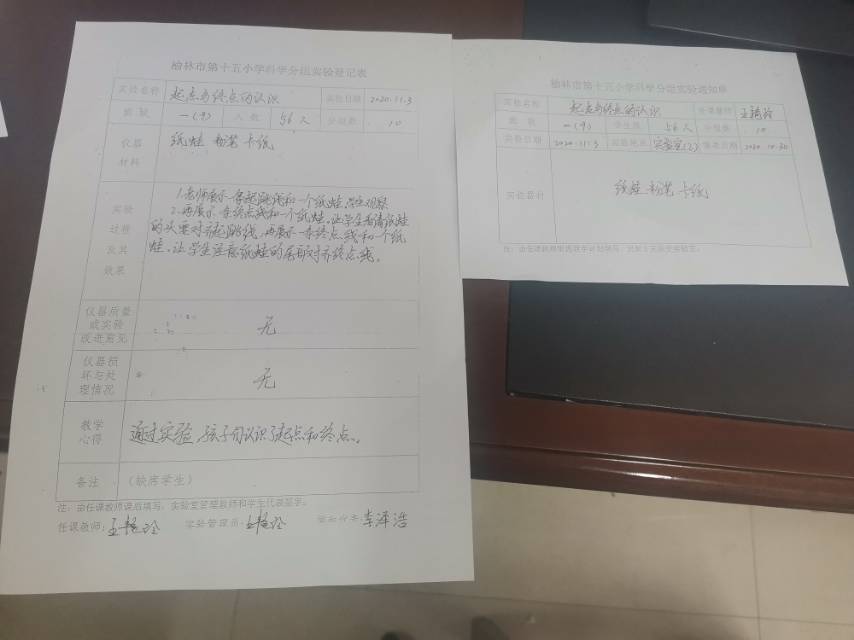 榆林市第十五小学科学分组实验登记表
实验名称 起点与终点的认识 实验日期 2020.11.3
班级 一(9) 人数 56人 分组数 10
仪器材料 纸蛙 粉笔 卡纸
实验过程及其效果
1.老师展示一条起跳线和一个纸蛙,学生观察
2.再展示一条终点线和一个纸蛙。让学生看清纸蛙
的头要对齐起跳线,再展示一条终点线和一个纸
蛙,让学生注意纸蛙的尾部对齐终点线。
仪器质量或实验改进意见 无
仪器损坏与处理情况 无
教学心得 通过实验,孩子们认识了起点和终点。
备注 (缺席学生)
注:由任课教师课后填写,实验室管理教师和学生代表签字。
任课教师: 实验管理员: 李泽浩
榆林市第十五小学科学分组实验通知单
实验名称 起点与终点的认识 任课教师
班级 一(9) 学生数 56人 分组数 10
实验日期 2020.11.3 实验地点 实验室(2) 通知日期 2020.10.30
实验器材 纸蛙 粉笔 卡纸